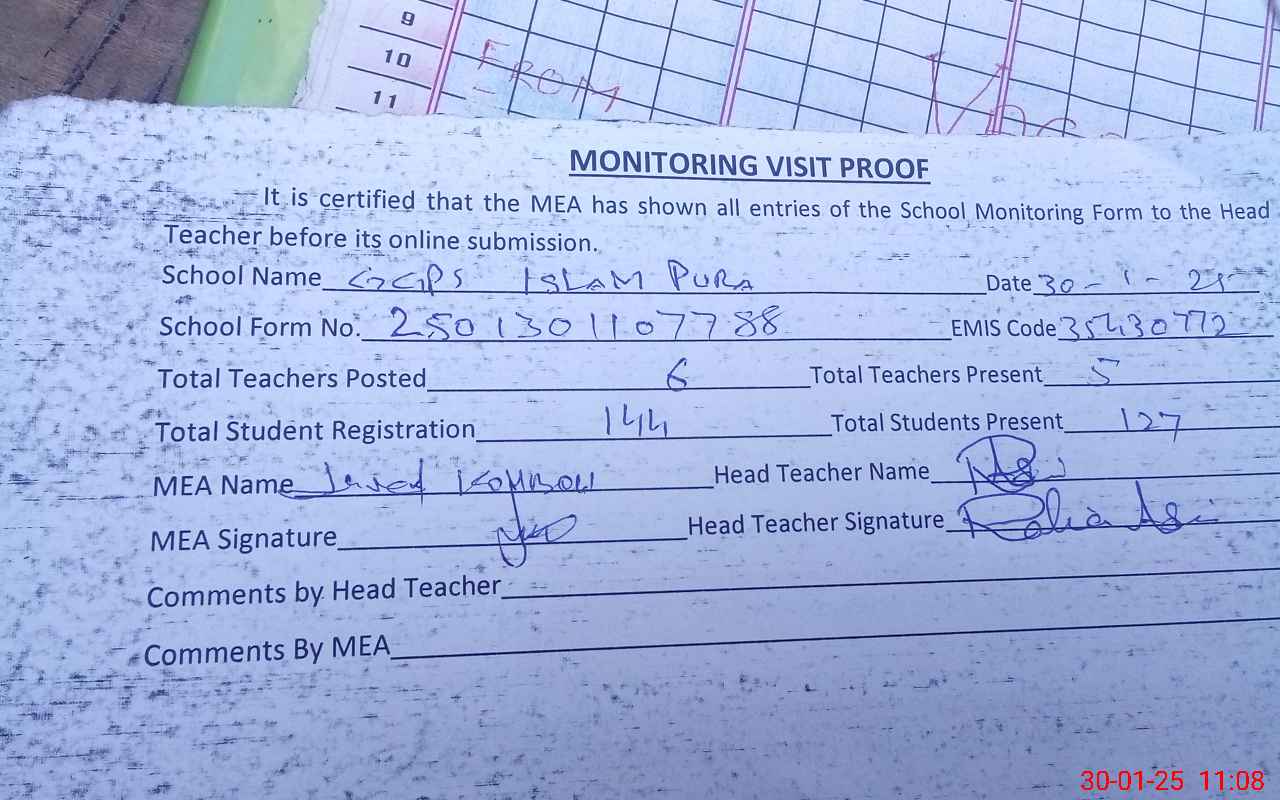 9
10
11
FROM
MONITORING VISIT PROOF
It is certified that the MEA has shown all entries of the School Monitoring Form to the Head
Teacher before its online submission.
School Name GGPS ISLAM PURA Date 30-1-25
School Form No. 25013011077 88 EMIS Code 35430772
Total Teachers Posted 6 Total Teachers Present 5
Total Student Registration 144 Total Students Present 127
MEA Name Head Teacher Name
MEA Signature Head Teacher Signature
Comments by Head Teacher
Comments By MEA
30-01-25 11:08